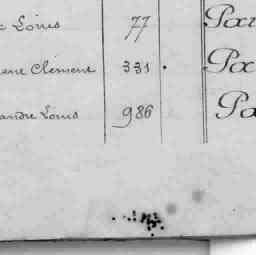 Louis 77 Par
Clément 331. Pa
andre Louis 986 Pa